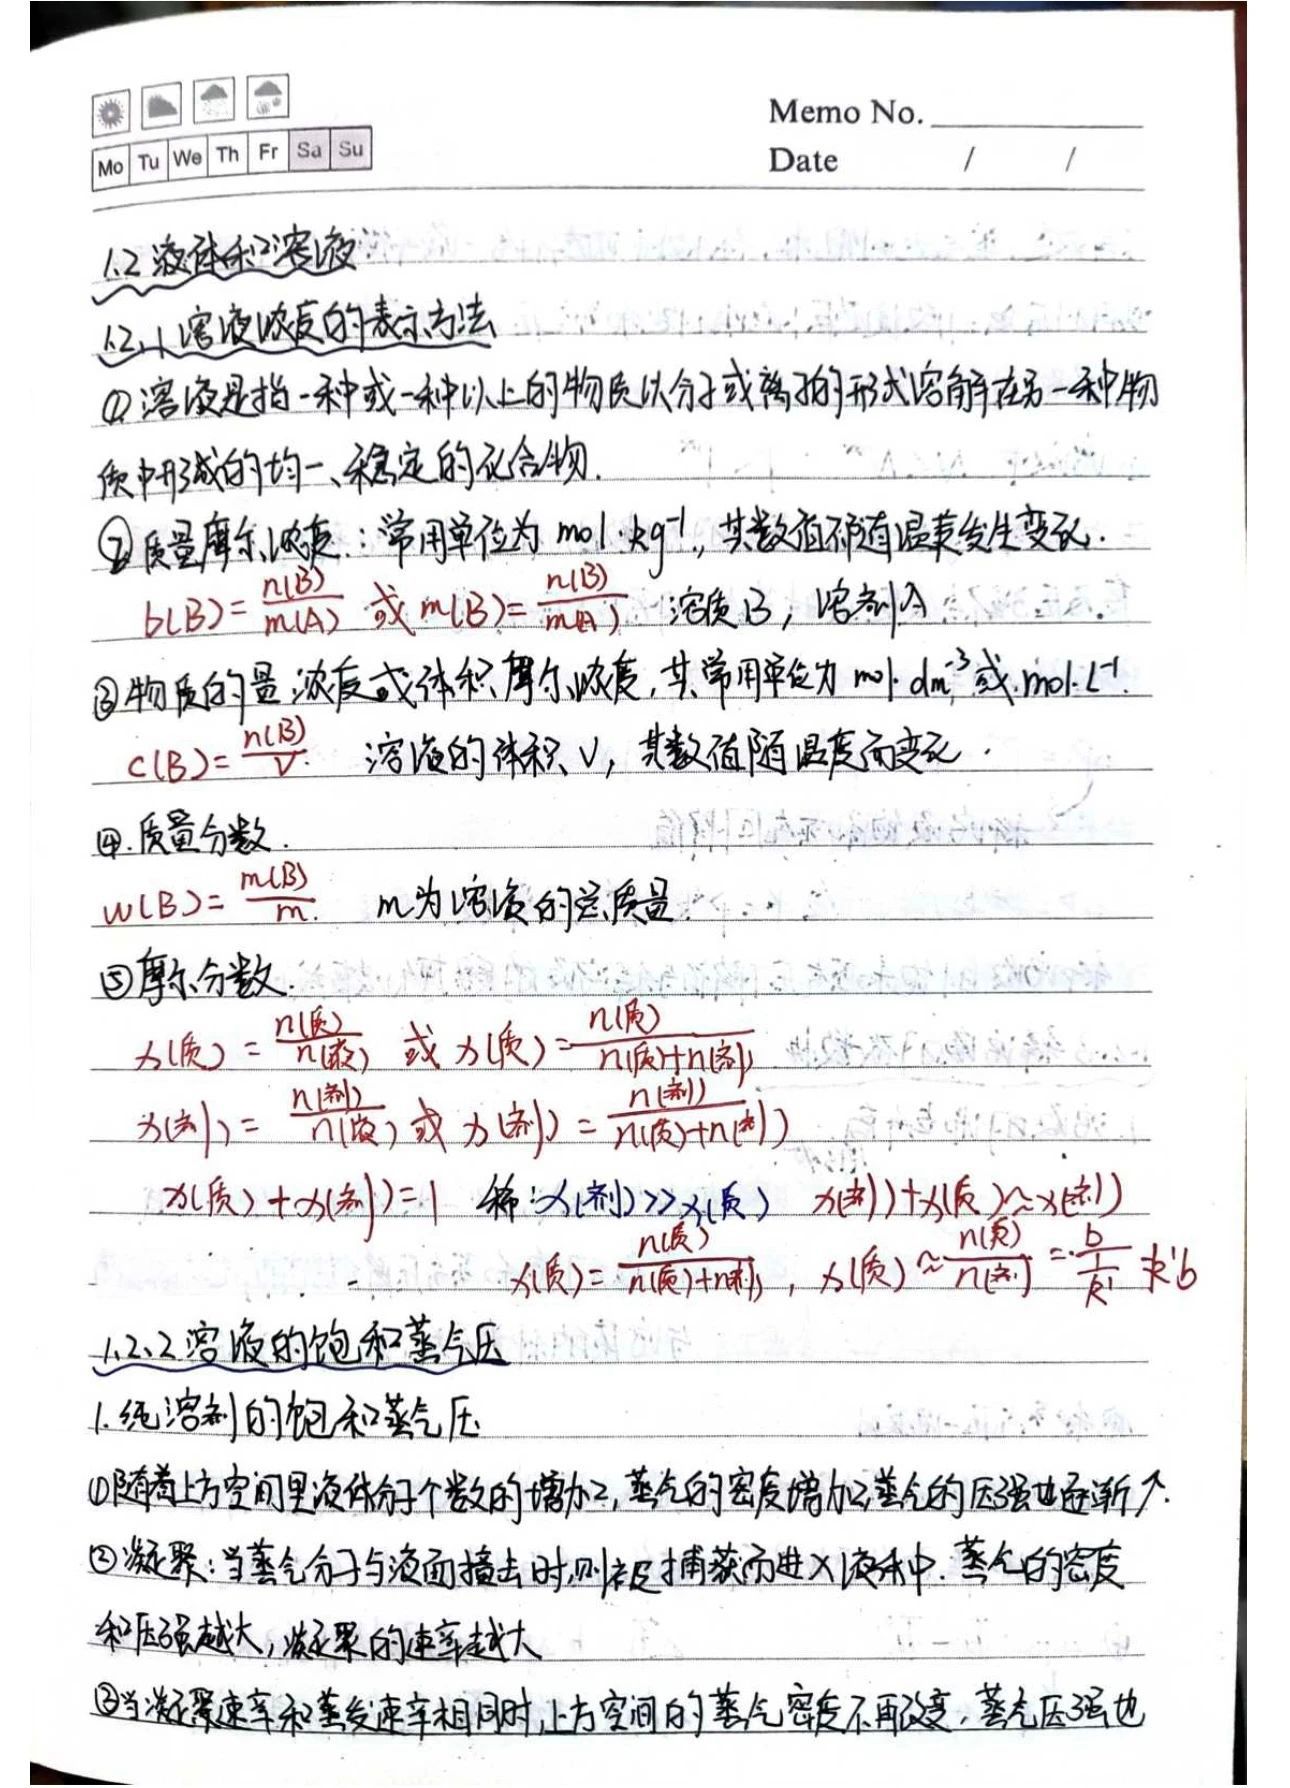 Memo No.
Mo Tu We Th Fr Sa Su
Date / /
1.2 液体和溶液
1.2.1 溶液浓度的表示方法
①溶液是指一种或一种以上的物质以分子或离子的形式溶解在另一种物
质中形成的均一、稳定的化合物.
②质量摩尔浓度:常用单位为 mol·kg⁻¹,其数值不随温度发生变化.
b(B)=n(B)/m(A) 或 m(B)=n(B)/m(A) 溶质B,溶剂A
③物质的量浓度或体积摩尔浓度,其常用单位为 mol·dm⁻³或mol·L⁻¹.
c(B)=n(B)/V 溶液的体积V,其数值随温度而变化.
④.质量分数.
w(B)=m(B)/m. m为溶液的总质量.
⑤摩尔分数.
x(质)=n(质)/n(液) 或 x(质)=n(质)/n(质)+n(剂)
x(剂)=n(剂)/n(液) 或 x(剂)=n(剂)/n(质)+n(剂)
x(质)+x(剂)=1 稀:x(剂)>>x(质) x(剂)+x(质)≈x(剂)
x(质)=n(质)/n(质)+n(剂), x(质)≈n(质)/n(剂)=b/(1/k')=k'b
1.2.2 溶液的饱和蒸气压
1.纯溶剂的饱和蒸气压
①随着上方空间里液体分子个数的增加,蒸气的密度增加,蒸气的压强也逐渐↗.
②凝聚:当蒸气分子与液面撞击时,则被捕获而进入液体中.蒸气的密度
和压强越大,凝聚的速率越大
③当凝聚速率和蒸发速率相同时,上方空间的蒸气密度不再改变,蒸气压强也